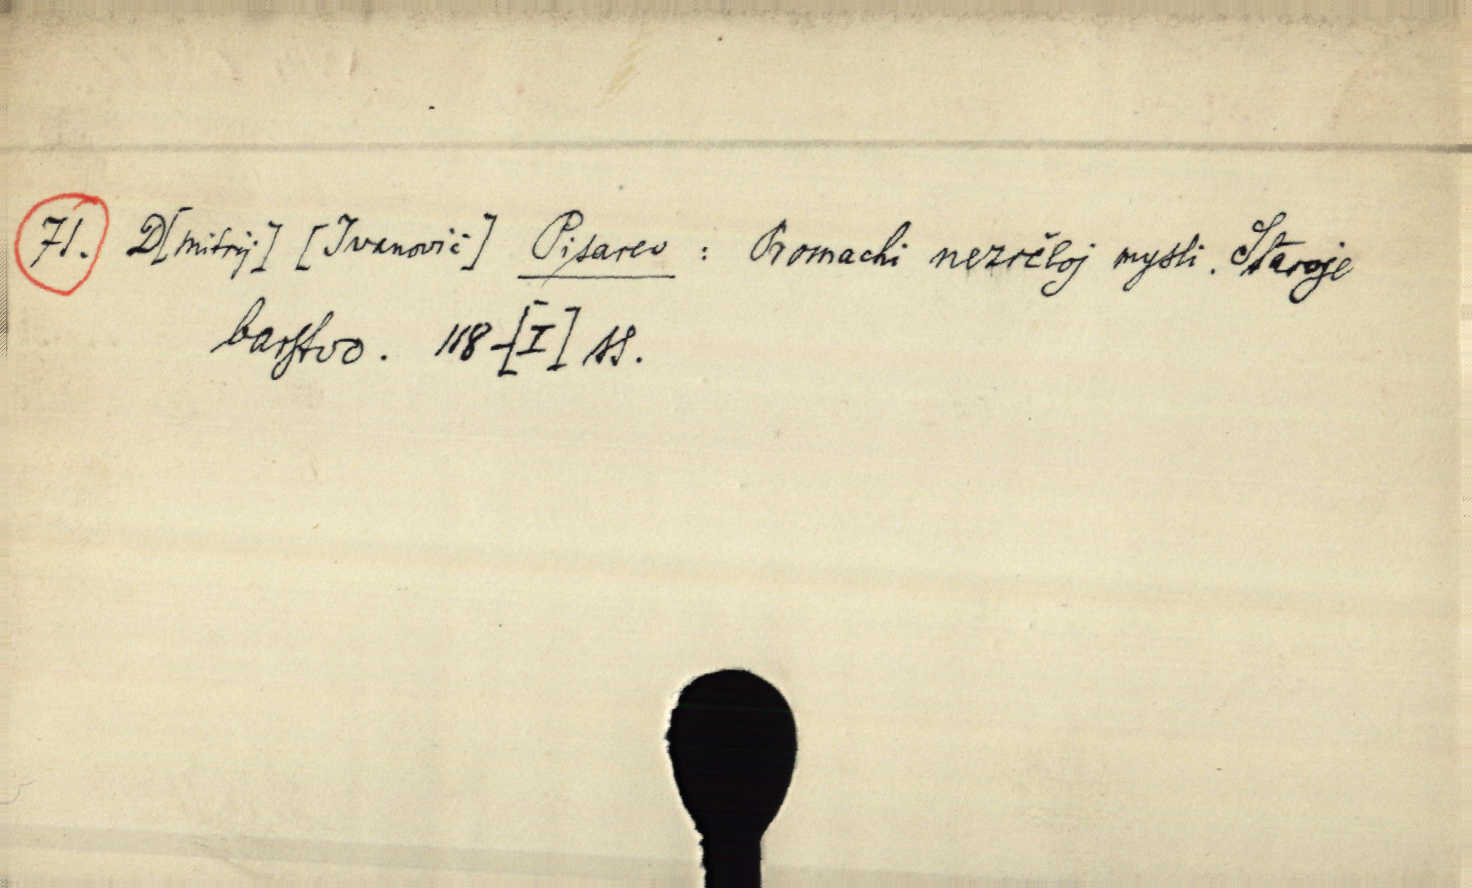 71. D[mitrij] [Ivanovič] Pisarev : Promachi nezrěloj mysli. Staroje
barstvo. 118-[I] SS.